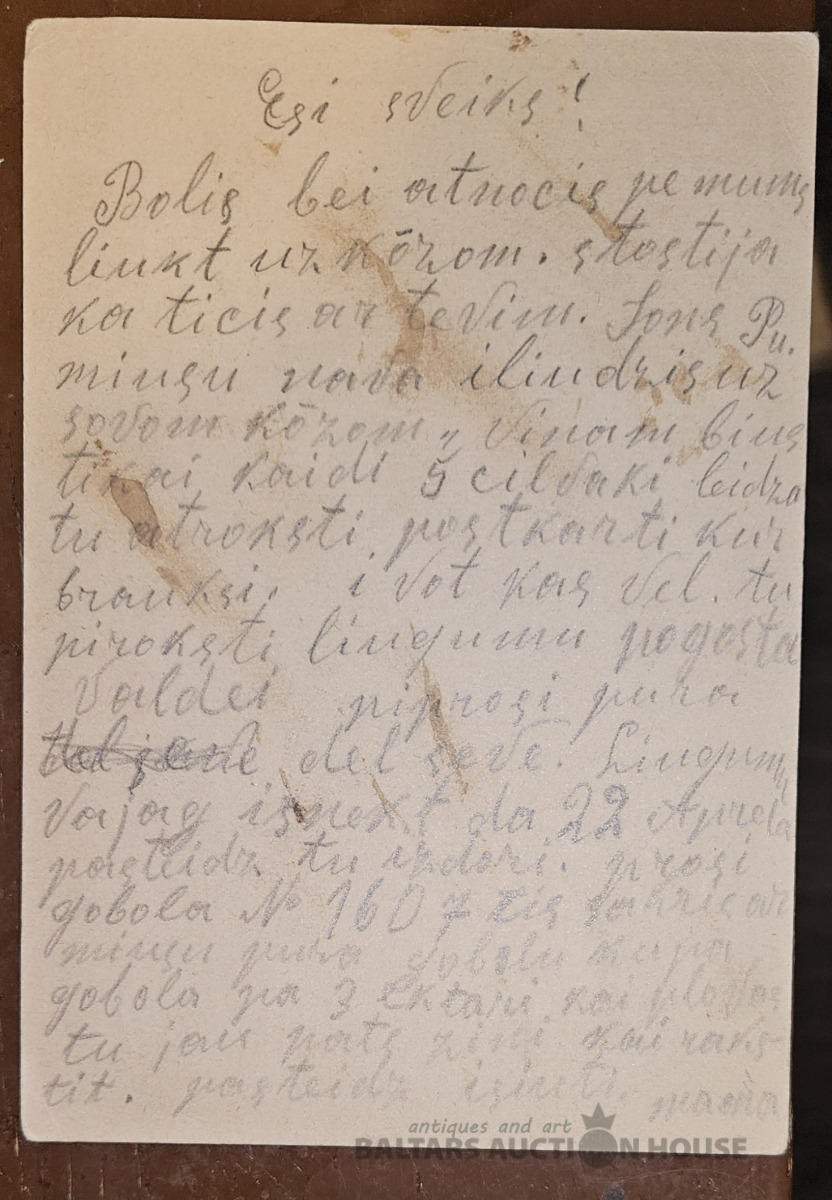 Esi sveiks!
Bolis bei atnocis pe mums
liukt uz kōzom. stostija
ka ticis ar tevim. Jons Pu.
minsu nava iliudzis uz
sovom kōzom „ vinam bius
tikai kaidi 5 cilvaki leidza
tu atroksti postkarti kur
brauksi. i vot kas vel. tu
piroksti lingumu pogosta
valdei piprosi pura
del seve. Lingumu
vajag isnekt da 22 Aprela
pasteidz tu izdori. prosi
gobola № 1607 tis sakris ar
minsu pura gobolu kupa
gobola pa 3 ektari kai plovas
tu jau pats zini kai raks-
tit. pasteidz isiuti. mama
antiques and art
BALTARS AUCTION HOUSE